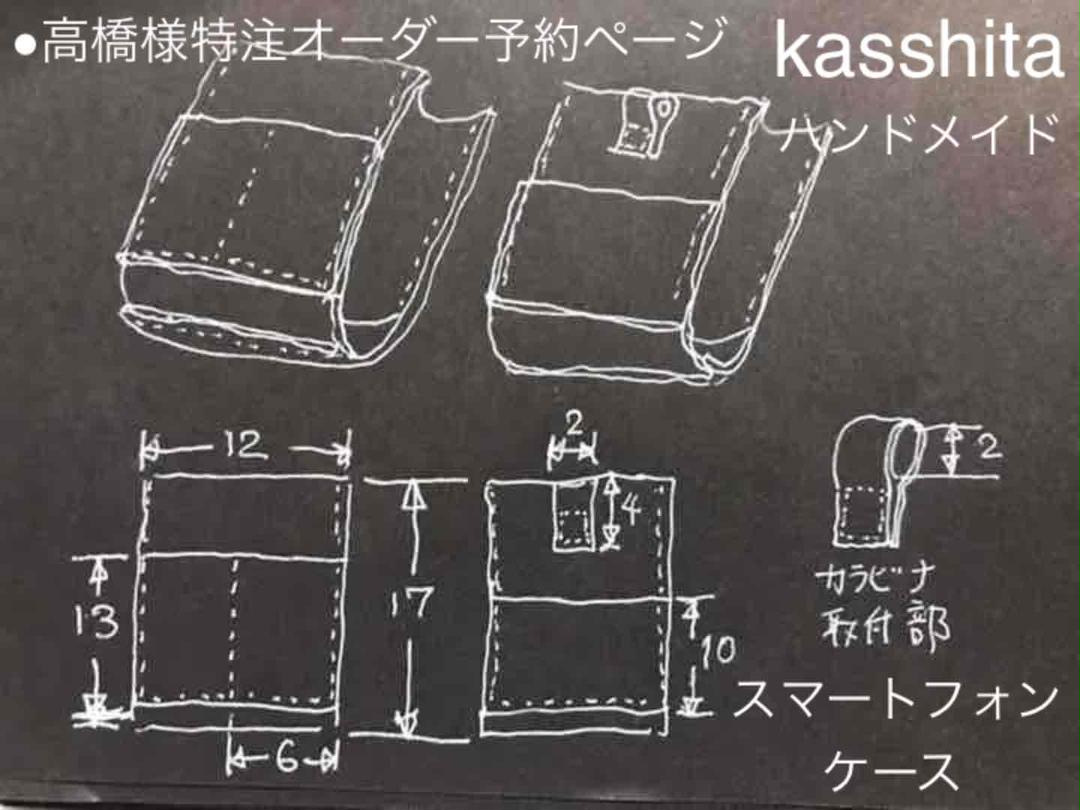 ●高橋様特注オーダー予約ページ
kasshita
ハンドメイド
12
2
4
2
13
17
10
6
カラビナ
取付部
スマートフォン
ケース